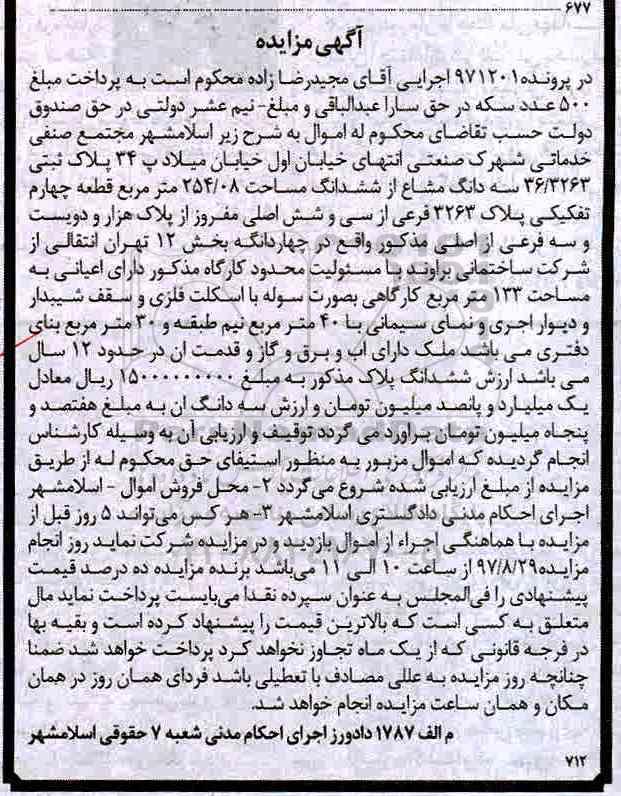 ۶۷۷
آگهی مزایده
در پرونده۹۷۱۲۰۱ اجرایی آقای مجیدرضا زاده محکوم است به پرداخت مبلغ
۵۰۰ عدد سکه در حق سارا عبدالباقی و مبلغ- نیم عشر دولتی در حق صندوق
دولت حسب تقاضای محکوم له اموال به شرح زیر اسلامشهر مجتمع صنفی
خدماتی شهرک صنعتی انتهای خیابان اول خیابان میلاد پ ۳۴ پلاک ثبتی
۳۶/۳۲۶۳ سه دانگ مشاع از ششدانگ مساحت ۲۵۴/۰۸ متر مربع قطعه چهارم
تفکیکی پلاک ۳۲۶۳ فرعی از سی و شش اصلی مفروز از پلاک هزار و دویست
و سه فرعی از اصلی مذکور واقع در چهاردانگه بخش ۱۲ تهران انتقالی از
شرکت ساختمانی براوند با مسئولیت محدود کارگاه مذکور دارای اعیانی به
مساحت ۱۳۳ متر مربع کارگاهی بصورت سوله با اسکلت فلزی و سقف شیبدار
و دیوار اجری و نمای سیمانی با ۴۰ متر مربع نیم طبقه و ۳۰ متر مربع بنای
دفتری می باشد ملک دارای اب و برق و گاز و قدمت ان در حدود ۱۲ سال
می باشد ارزش ششدانگ پلاک مذکور به مبلغ ۱۵۰۰۰۰۰۰۰۰۰ ریال معادل
یک میلیارد و پانصد میلیون تومان و ارزش سه دانگ ان به مبلغ هفتصد و
پنجاه میلیون تومان براورد می گردد توقیف و ارزیابی آن به وسیله کارشناس
انجام گردیده که اموال مزبور به منظور استیفای حق محکوم له از طریق
مزایده از مبلغ ارزیابی شده شروع می‌گردد ۲- محل فروش اموال - اسلامشهر
اجرای احکام مدنی دادگستری اسلامشهر ۳- هر کس می‌تواند ۵ روز قبل از
مزایده با هماهنگی اجراء از اموال بازدید و در مزایده شرکت نماید روز انجام
مزایده۹۷/۸/۲۹ از ساعت ۱۰ الی ۱۱ می‌باشد برنده مزایده ده درصد قیمت
پیشنهادی را فی‌المجلس به عنوان سپرده نقدا می‌بایست پرداخت نماید مال
متعلق به کسی است که بالاترین قیمت را پیشنهاد کرده است و بقیه بها
در فرجه قانونی که از یک ماه تجاوز نخواهد کرد پرداخت خواهد شد ضمنا
چنانچه روز مزایده به عللی مصادف با تعطیلی باشد فردای همان روز در همان
مکان و همان ساعت مزایده انجام خواهد شد.
م الف ۱۷۸۷ دادورز اجرای احکام مدنی شعبه ۷ حقوقی اسلامشهر
۷۱۲